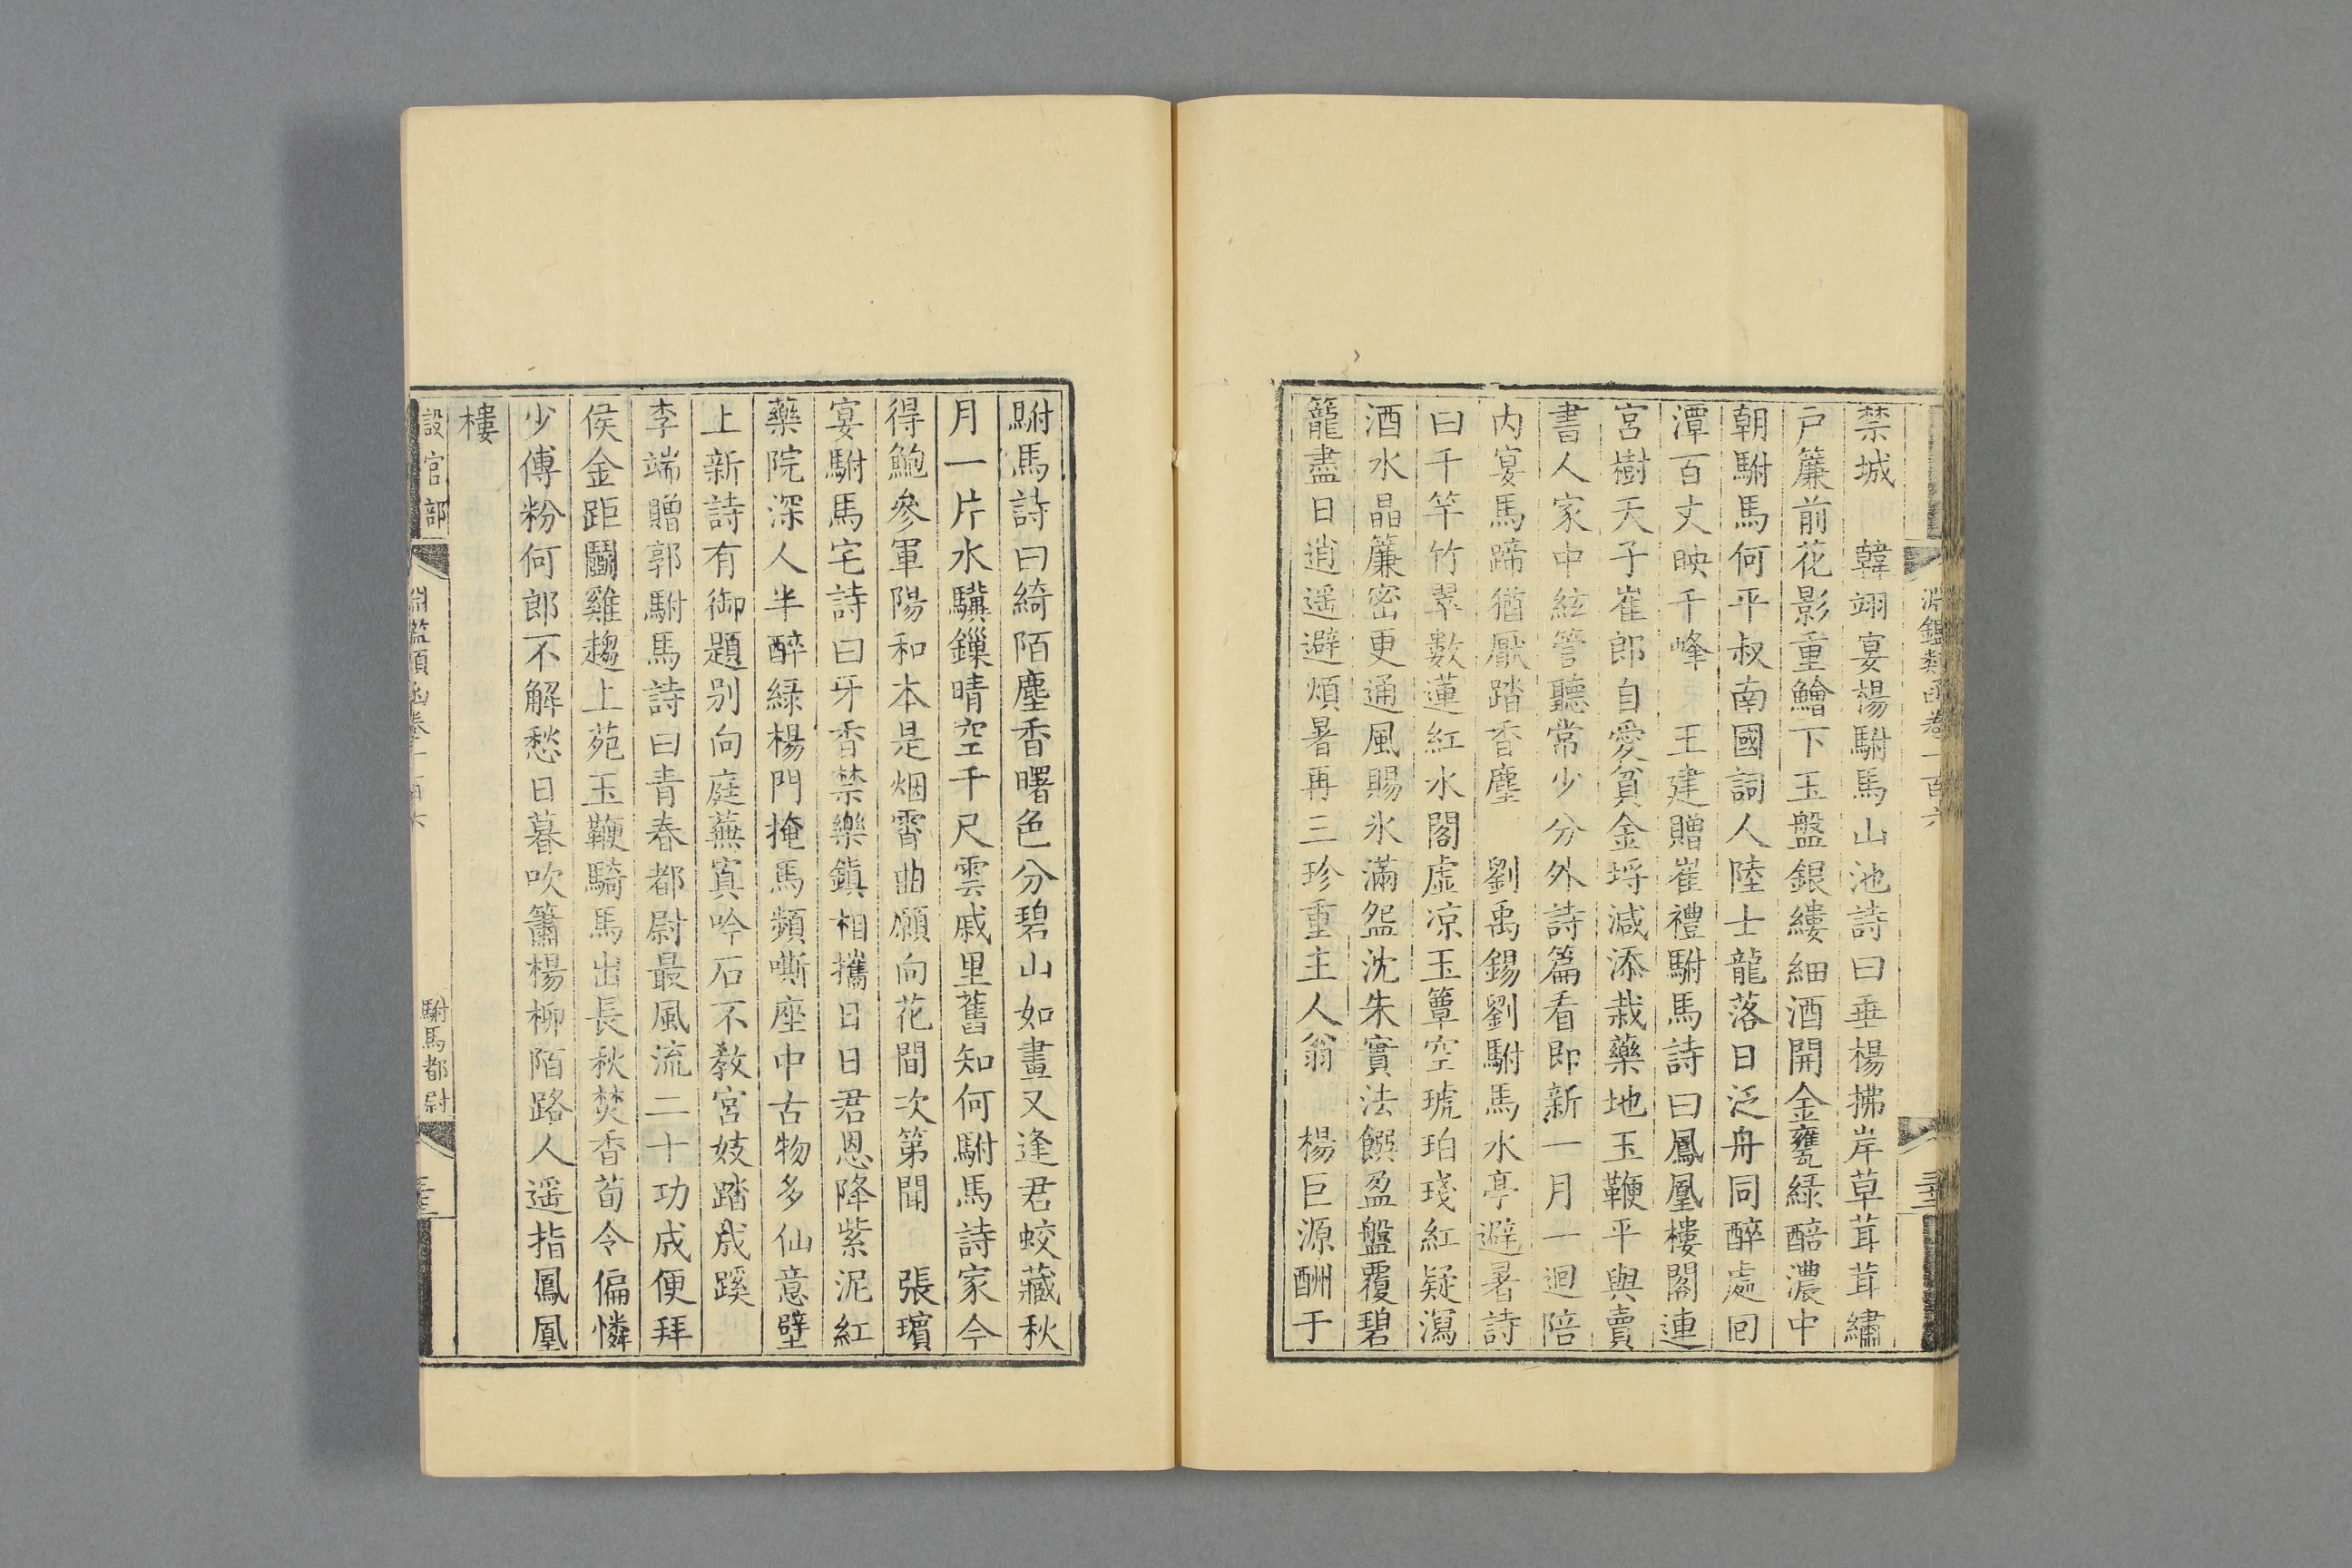 淵鑑類函卷一百六
禁城　韓翃宴楊駙馬山池詩曰垂楊拂岸草茸茸繡
戸簾前花影重鱠下玉盤銀縷細酒開金甕緑醅濃中
朝駙馬何平叔南國詞人陸士龍落日泛舟同醉處回
潭百丈映千峰　王建贈崔禮駙馬詩曰鳳凰樓閣連
宮樹天子崔郎自愛貧金埒減添栽藥地玉鞭平與賣
書人家中絃管聽常少分外詩篇看即新一月一迴陪
内宴馬蹄猶厭踏香塵　劉禹錫劉駙馬水亭避暑詩
曰千竿竹翠數蓮紅水閣虛凉玉簟空琥珀琖紅疑瀉
酒水晶簾密更通風賜氷滿盌沈朱實法饌盈盤覆碧
籠盡日逍遥避煩暑再三珍重主人翁　楊巨源酬于
駙馬詩曰綺陌塵香曙色分碧山如畫又逢君蛟藏秋
月一片水驥鏁晴空千尺雲戚里舊知何駙馬詩家今
得鮑參軍陽和本是烟霄曲願向花間次第聞　張璸
宴駙馬宅詩曰牙香禁樂鎭相攜日日君恩降紫泥紅
藥院深人半醉緑楊門掩馬頻嘶座中古物多仙意壁
上新詩有御題別向庭蕪寘吟石不教宮妓踏成蹊
李端贈郭駙馬詩曰青春都尉最風流二十功成便拜
侯金距鬬雞趨上苑玉鞭騎馬出長秋焚香荀令偏憐
少傅粉何郎不解愁日暮吹簫楊柳陌路人遥指鳳凰
樓
設官部
淵鑑類函卷一百六
駙馬都尉